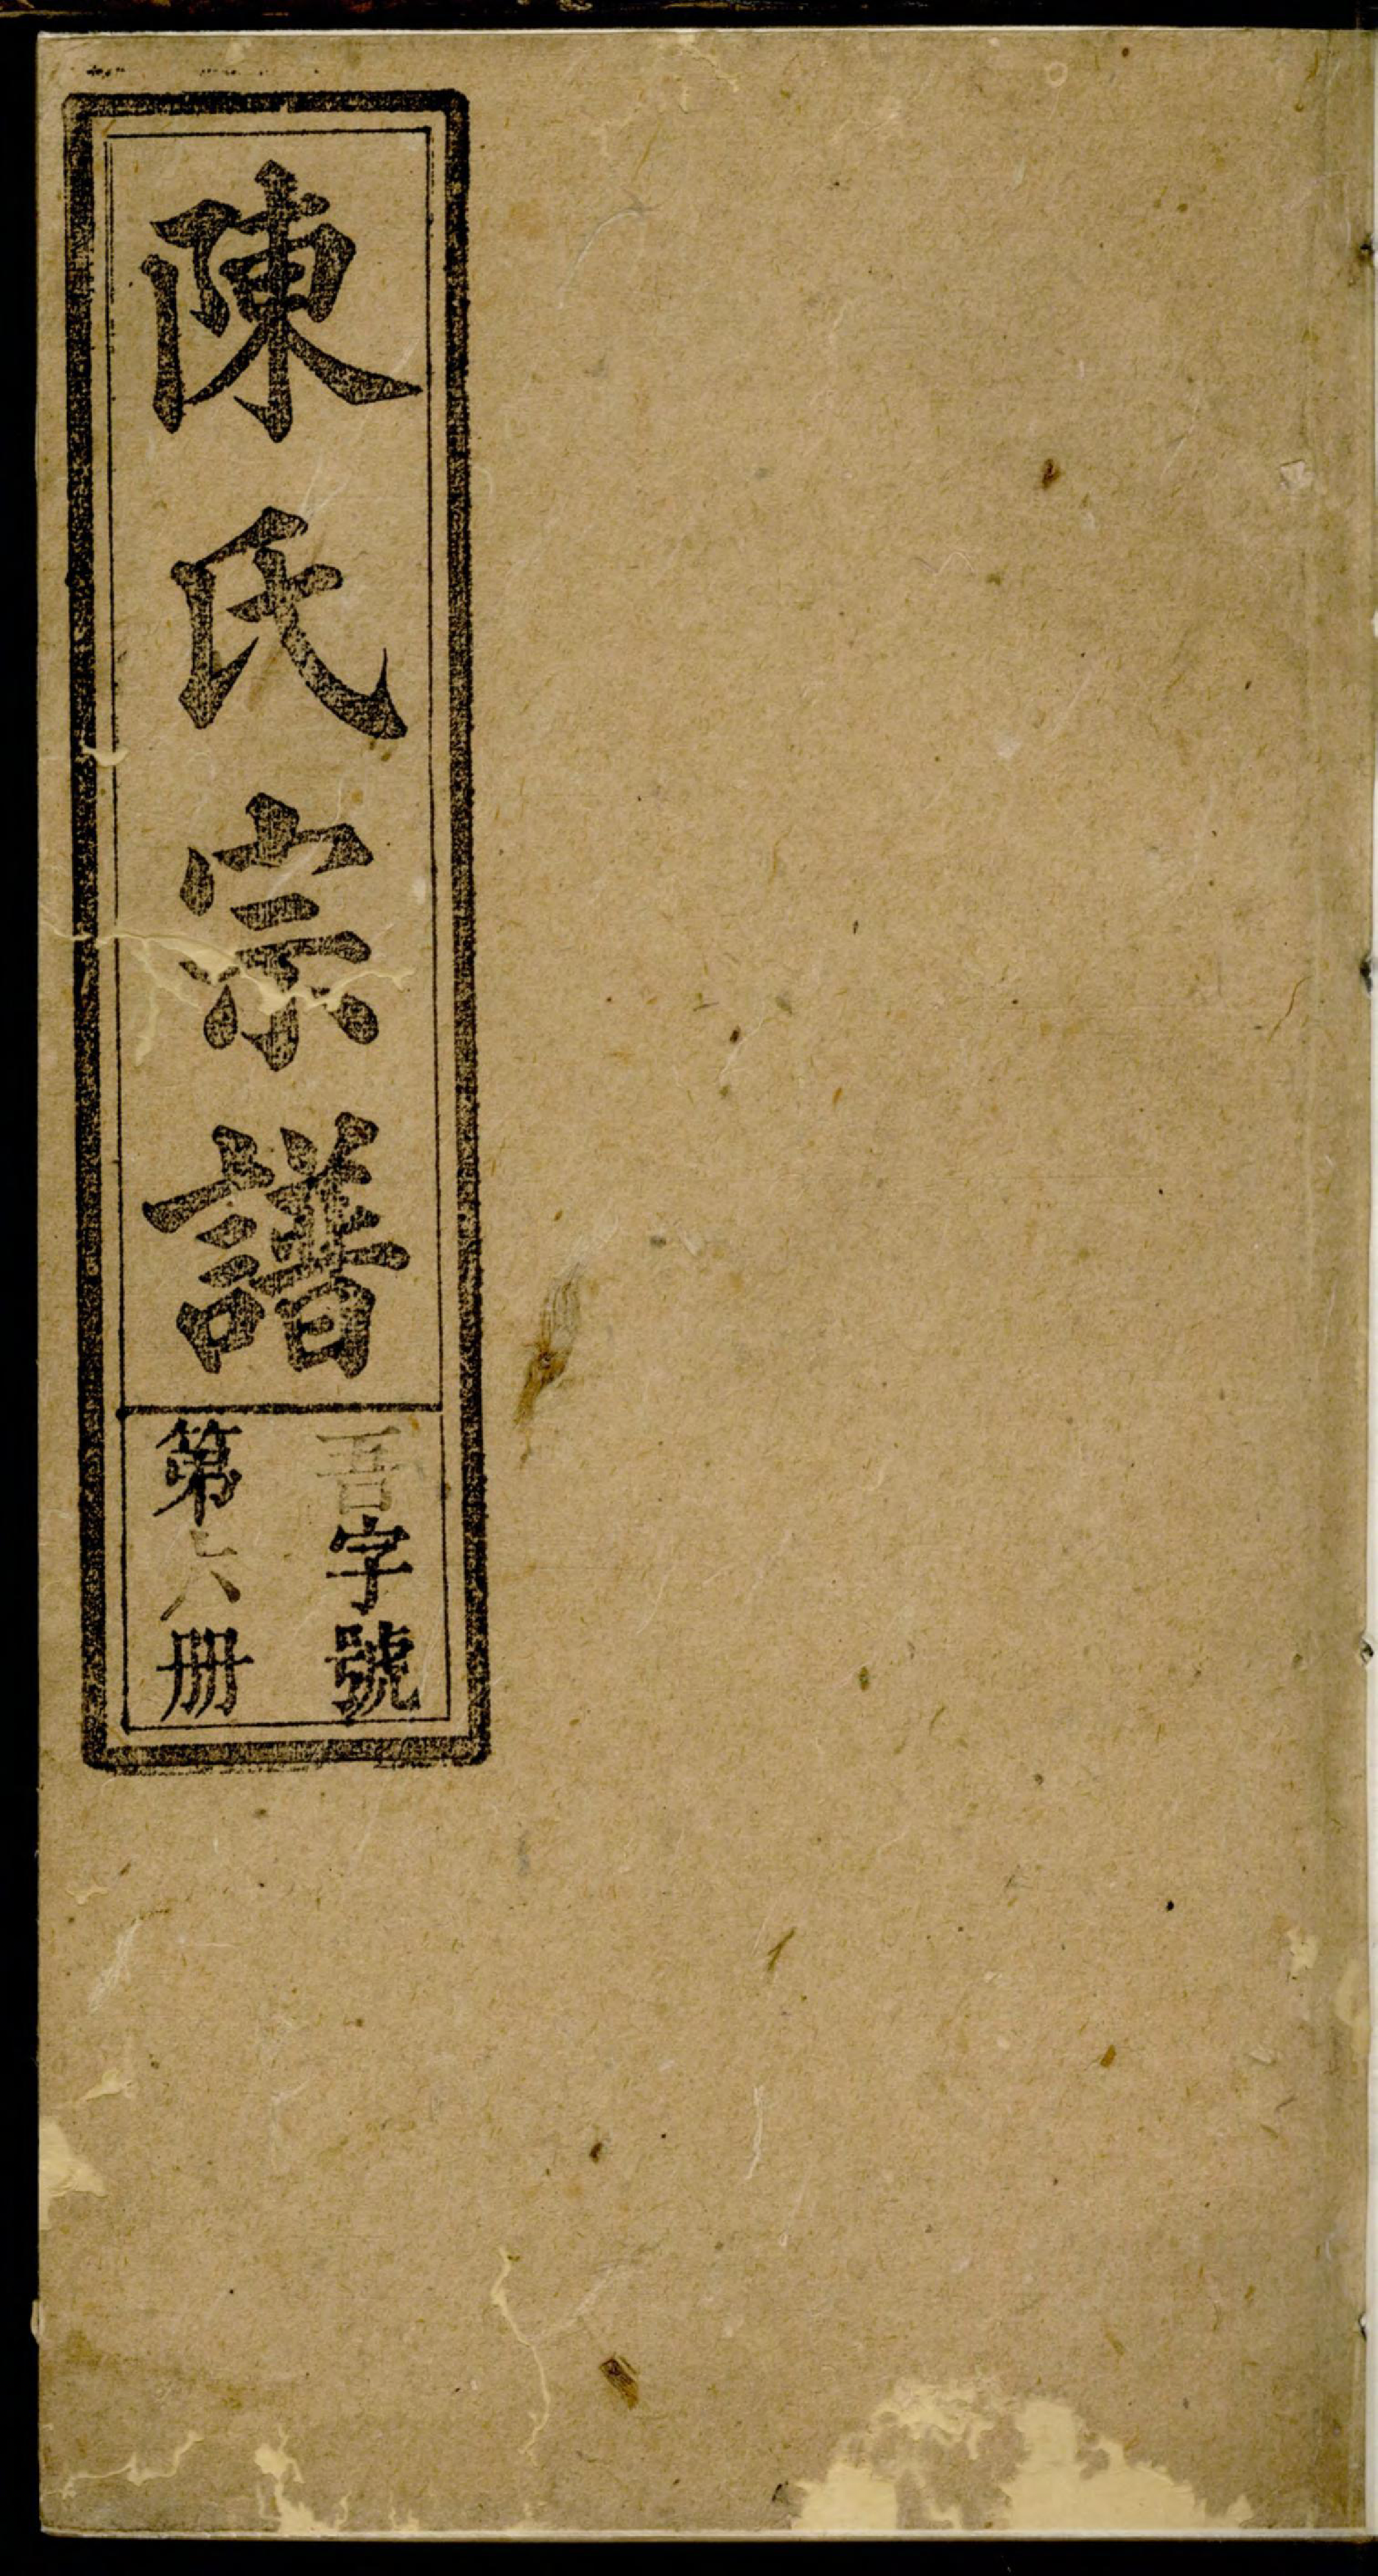 陳氏宗譜
吾字號
第六册